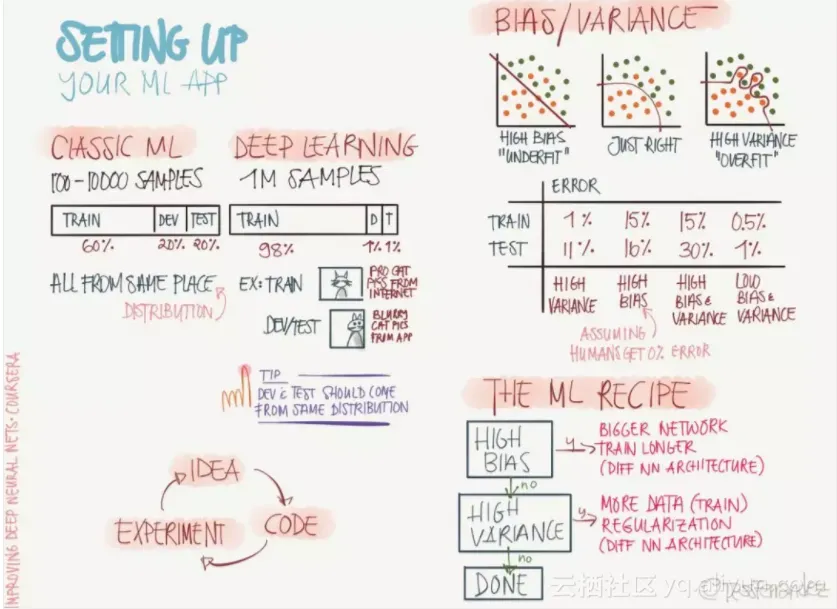 SETTING UP
YOUR ML APP
CLASSIC ML
100-10000 SAMPLES
TRAIN DEV TEST
60% 20% 20%
ALL FROM SAME PLACE
DISTRIBUTION
DEEP LEARNING
1M SAMPLES
TRAIN D T
98% 1% 1%
EX: TRAIN
PRO CAT
PICS FROM
INTERNET
DEV/TEST
BLURRY
CAT PICS
FROM APP
TIP
DEV & TEST SHOULD COME
FROM SAME DISTRIBUTION
IDEA
CODE
EXPERIMENT
BIAS/VARIANCE
HIGH BIAS
"UNDERFIT"
JUST RIGHT
HIGH VARIANCE
"OVERFIT"
ERROR
TRAIN 1% 15% 15% 0.5%
TEST 11% 16% 30% 1%
HIGH
VARIANCE
HIGH
BIAS
HIGH
BIAS &
VARIANCE
LOW
BIAS &
VARIANCE
ASSUMING
HUMANS GET 0% ERROR
THE ML RECIPE
HIGH
BIAS
Y
BIGGER NETWORK
TRAIN LONGER
(DIFF NN ARCHITECTURE)
no
HIGH
VARIANCE
Y
MORE DATA (TRAIN)
REGULARIZATION
(DIFF NN ARCHITECTURE)
no
DONE
IMPROVING DEEP NEURAL NETS · COURSERA
云栖社区